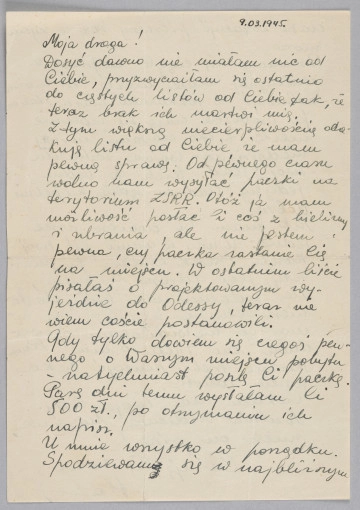 9.03.1945.
Moja droga!
Dosyć dawno nie miałam nic od
Ciebie, przyzwyczaiłam się ostatnio
do częstych listów od Ciebie, tak, że
teraz brak ich martwi mię.
Z tym większą niecierpliwością ocze-
kuję listu od Ciebie że mam
pewną sprawę. Od pewnego czasu
wolno nam wysyłać paczki na
terytorium ZSRR. Otóż ja mam
możliwość posłać Ci coś z bielizny
i ubrania, ale nie jestem
pewna, czy paczka zastanie Cię
na miejscu. W ostatnim liście
pisałaś o projektowanym wy-
jeździe do Odessy, teraz nie
wiem coście postanowili.
Gdy tylko dowiem się czegoś pew-
nego o Waszym miejscu pobytu
- natychmiast poszlę Ci paczkę.
Parę dni temu wysłałam Ci
500 zł., po otrzymaniu ich
napisz.
U mnie wszystko w porządku.
Spodziewamy się w najbliższym